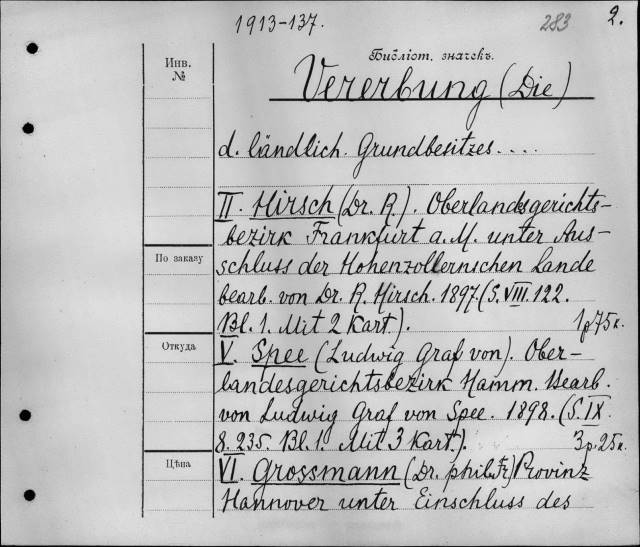 1913-137.
283
2.
Инв.
№
Библіот. значекъ.
Vererbung (Die)
d. ländlich. Grundbesitzes....
II. Hirsch (Dr. R.). Oberlandsgerichts-
bezirk Frankfurt a. M. unter Aus-
schluss der Hohenzollernschen Lande
По заказу
bearb. von Dr. R. Hirsch. 1897. (S. VIII. 122.
Bl. 1. Mit 2 Kart.). 1р75к.
Откуда
V. Spee (Ludwig Graf von). Ober-
landesgerichtsbezirk Hamm. Bearb.
von Ludwig Graf von Spee. 1898. (S. IX.
8. 235. Bl. 1. Mit 3 Kart.). 3р.25к.
Цѣна
VI. Grossmann (Dr. phil. Fr.) Provinz
Hannover unter Einschluss des